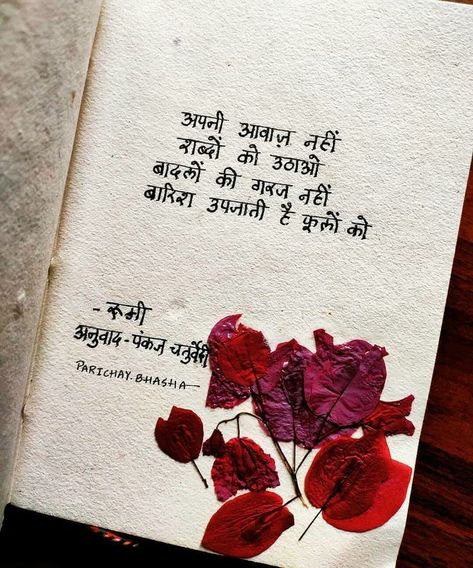 अपनी आवाज़ नहीं
शब्दों को उठाओ
बादलों की गरज नहीं
बारिश उपजाती है फूलों को
- रूमी
अनुवाद - पंकज चतुर्वेदी
PARICHAY.BHASHA